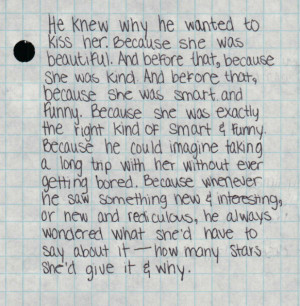 He knew why he wanted to
kiss her. Because she was
beautiful. And before that, because
she was kind. And before that,
because she was smart and
funny. Because she was exactly
the right kind of smart & funny.
Because he could imagine taking
a long trip with her without ever
getting bored. Because whenever
he saw something new & interesting,
or new and rediculous, he always
wondered what she'd have to
say about it — how many stars
she'd give it & why.